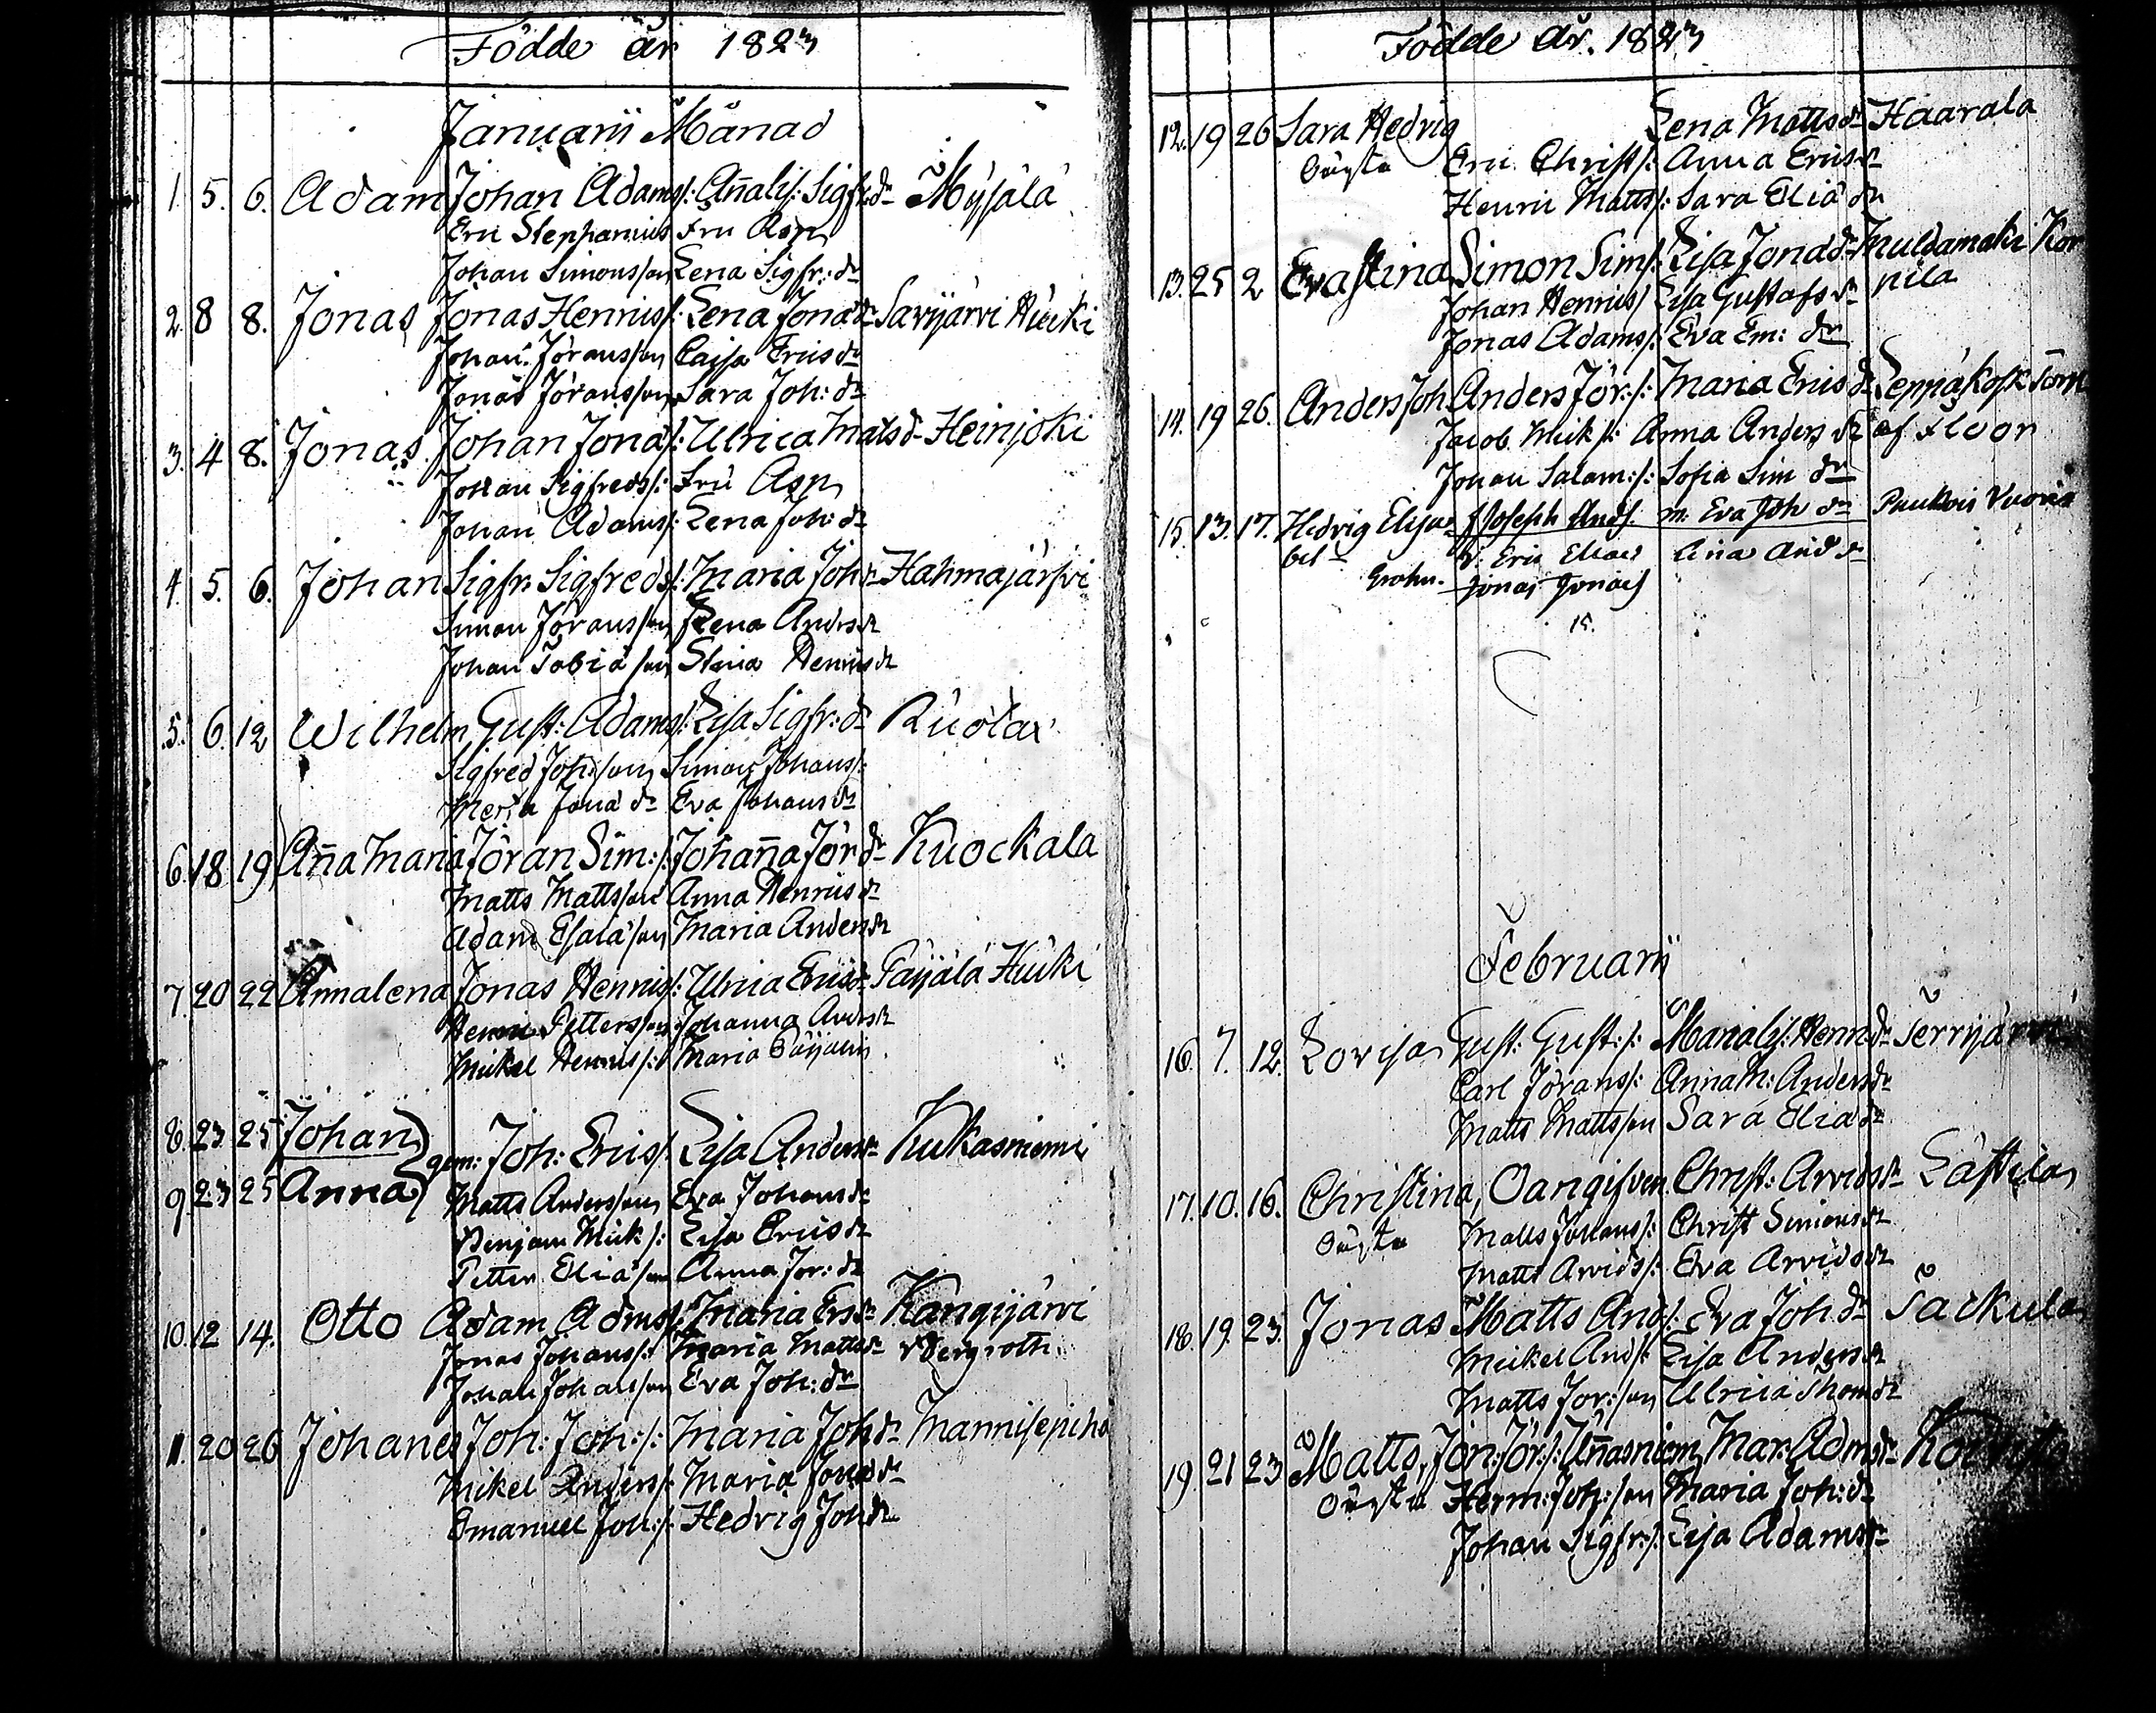 Födde år 1823
Januarii Månad
1. 5. 6. Adam Johan Adams/: Añalis: Sigfr:dr Mysälä
Eric Stephanius Fru Asp
Johan Simonsson Lena Sigfr: dr
2. 8 8. Jonas Jonas Henrics/: Lena Jona dr Savijärvi Hücki
Johan Jöransson Caisa Erics dr
Jonas Jöransson Sara Joh: dr
3. 4 8. Jonas Johan Jona/: Ulrica Mats dr Heinjoki
Johan Sigfreds/: Fru Asp
Johan Adams/: Lena Joh: dr
4. 5. 6. Johan Sigfr: Sigfreds/: Maria Joh dr Hahmajärfvi
Simon Jöransson Lena Anders dr
Johan Tobiason Stina Henrics dr
5. 6. 12 Wilhelm Gust: Adams/: Lisa Sigfr: dr
Sigfred Joh:son Simon Johans/:
Jona dr Eva Johans dr
6. 18 19 Aña Maria Jöran Sim:/: Johaña Jör dr Kuockala
Matts Mattsson Anna Henrics dr
Adam Esaiason Maria Anders dr
7. 20 22 Annalena Jonas Henrics/: Ulrica Erics dr Päijälä Hücki
Henric Pettersson Johanna Anders dr
Mickel Henrics/: Maria
8. 23 25 Johan } gem: Joh: Erics/: Lisa Anders dr Kukasniemi
9. 23 25 Anna Matts Andersson Eva Johans dr
Benjam Mick/: Lisa Erics dr
Petter Eliason Anna Jör: dr
10. 12 14. Otto Adam Adms/: Maria Ers dr Kangijärvi
Jonas Johans/: Maria Matts dr Bergroth
Johan Johansson Eva Joh: dr
11. 20 26 Johanes Joh: Joh:/: Maria Joh dr
Mikel Anders/: Maria Jona dr
Emanuel Joh:/: Hedvig Joh dr
Födde år. 1823
12. 19 26 Sara Hedvig Lena Matts dr Haarala
Oägta Eric Christ/: Anna Erics dr
Henric Matts/: Sara Elia dr
13. 25 2 Evastina Simon Sim/: Lisa Jona dr Multamäki Kor
Johan Henrics/ Lisa Gustafs dr pila
Jonas Adams/: Eva Em: dr
14. 19 26. Anders Joh Anders Jör:/: Maria Erics dr Leppäkosk Torp
Jacob Mick/: Anna Anders dr af
Johan Salam:/: Sofia Sim dr
15. 13. 17. Hedvig Elisa f Joseph Ands/. m. Eva Joh dr Vuoria
bet V. Eric Elias And dr
Jonas Jonas/
15.
Februarii
16. 7. 12. Lovisa Gust: Gust:/: Marialis: Henr dr
Carl Jörans/: Anna M: Anders dr
Matts Mattsson Sara Elia dr
17. 10. 16. Christina, Oangifven Christ: Arvids dr Lästilä
Oägta Matts Johans/: Christ Simons dr
Matts Arvids/: Eva Arvids dr
18. 19. 23. Jonas Matts And/: Eva Joh dr Säckula
Mickel And/: Lisa Anders dr
Matts Jör:son Ulrica Thom dr
19. 21 23 Matts, Jon: Jör:/: Mar: Adms dr
Oägta Herm: Joh:son Maria Joh: dr
Johan Sigfr:/: Lisa Adams dr